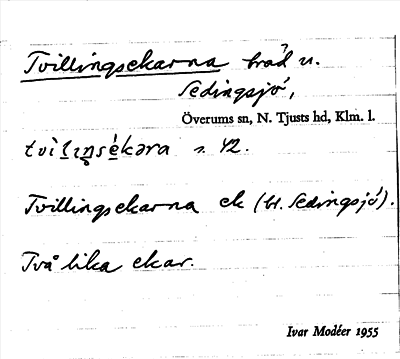 Tvillingsekarna träd u.
Sedingsjö,
Överums sn, N. Tjusts hd, Klm. l.
s. 42.
Tvillingsekarna ek (bl. Sedingsjö).
Två lika ekar.
Ivar Modéer 1955